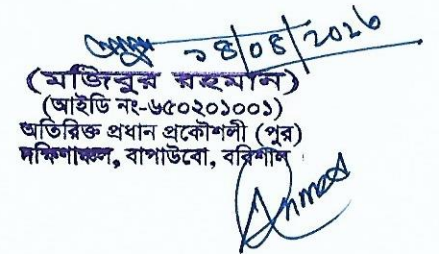 ১৪/০৪/2026
(মজিবুর রহমান)
(আইডি নং-৬৫০২০১০০১)
অতিরিক্ত প্রধান প্রকৌশলী (পুর)
দক্ষিণাঞ্চল, বাপাউবো, বরিশাল